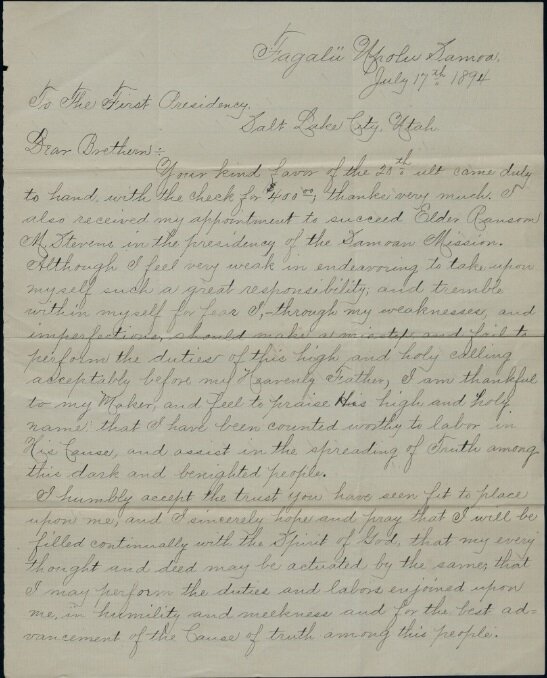 Fagalii Upolu Samoa.
July 17th 1894
To The First Presidency,
Salt Lake City, Utah.
Dear Brethern:-
Your kind favor of the 20th ult came duly
to hand with the check for $400 00, thanks very much. I
also received my appointment to succeed Elder Ransom
M. Stevens in the presidency of the Samoan Mission.
Although I feel very weak in endeavoring to take upon
myself such a great responsibility, and tremble
within myself for fear I,-through my weaknesses, and
imperfections, should make a misstep and fail to
perform the duties of this high and holy calling
acceptably before my Heavenly Father, I am thankful
to my Maker, and feel to praise His high and holy
name that I have been counted worthy to labor in
His Cause, and assist in the spreading of Truth among
this dark and benighted people.
I humbly accept the trust you have seen fit to place
upon me, and I sincerely hope and pray that I will be
filled continually with the Spirit of God, that my every
thought and deed may be actuated by the same, that
I may perform the duties and labors enjoined upon
me, in humility and meekness and for the best ad-
vancement of the Cause of truth among this people.